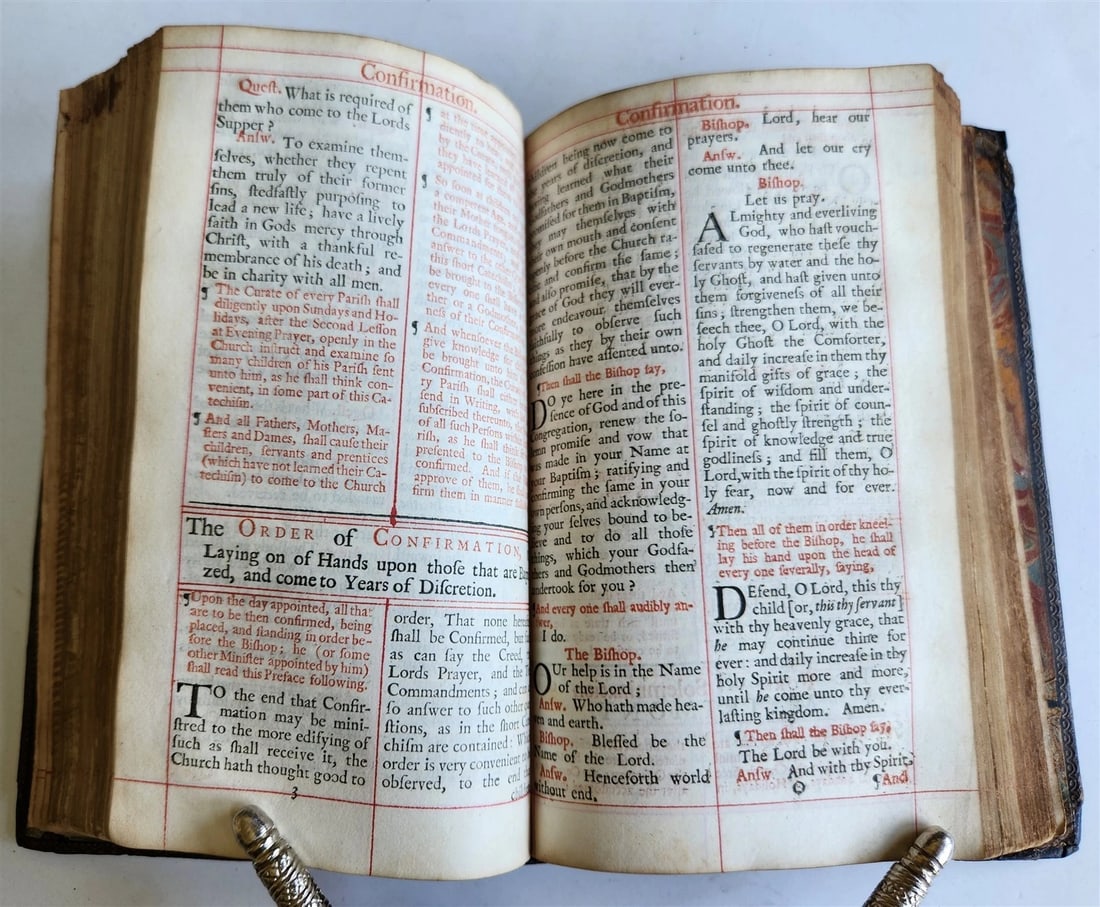 Confirmation.
Quest. What is required of
them who come to the Lords
Supper?
Answ. To examine them-
ſelves, whether they repent
them truly of their former
ſins, ſtedfaſtly purpoſing to
lead a new life; have a lively
faith in Gods mercy through
Chriſt, with a thankful re-
membrance of his death; and
be in charity with all men.
¶ The Curate of every Pariſh ſhall
diligently upon Sundays and Ho-
lidays, after the Second Leſſon
at Evening Prayer, openly in the
Church inſtruct and examine ſo
many children of his Pariſh ſent
unto him, as he ſhall think con-
venient, in ſome part of this Ca-
techiſm.
¶ And all Fathers, Mothers, Ma-
ſters and Dames, ſhall cauſe their
children, ſervants and prentices
(which have not learned their Ca-
techiſm) to come to the Church
¶ at the time
by the
they have
appointed for
¶ So ſoon as children
a competent Age,
their Mother
the Lords Prayer,
Commandments;
anſwer to the
this ſhort Catechiſm
be brought to the
every one ſhall have
ther or a Godmother,
neſs of their
¶ And whenſoever the
give knowledge for
be brought unto
Confirmation, the
ry Pariſh ſhall either
ſend in Writing, with
ſubſcribed thereunto,
of all ſuch Perſons within
riſh, as he ſhall think
preſented to the Biſhop
confirmed. And if the
approve of them, he
firm them in manner
The ORDER of CONFIRMATION,
Laying on of Hands upon thoſe that are
zed, and come to Years of Diſcretion.
¶ Upon the day appointed, all that
are to be then confirmed, being
placed, and ſtanding in order be-
fore the Biſhop; he (or ſome
other Miniſter appointed by him)
ſhall read this Preface following.
TO the end that Confir-
mation may be mini-
ſtred to the more edifying of
ſuch as ſhall receive it, the
Church hath thought good to
order, That none
ſhall be Confirmed, but
as can ſay the Creed,
Lords Prayer, and the
Commandments; and
ſo anſwer to ſuch other
ſtions, as in the ſhort
chiſm are contained:
order is very convenient
obſerved, to the end
3
Confirmation.
being now come to
years of diſcretion, and
learned what their
and Godmothers
for them in Baptiſm,
may themſelves with
own mouth and conſent
before the Church ra-
and confirm the ſame;
alſo promiſe, that by the
of God they will ever-
endeavour themſelves
to obſerve ſuch
as they by their own
have aſſented unto.
¶ Then ſhall the Biſhop ſay,
DO ye here in the pre-
ſence of God and of this
Congregation, renew the ſo-
promiſe and vow that
was made in your Name at
your Baptiſm; ratifying and
confirming the ſame in your
own perſons, and acknowledg-
ing your ſelves bound to be-
lieve and to do all thoſe
things, which your Godfa-
thers and Godmothers then
undertook for you?
And every one ſhall audibly an-
ſwer,
I do.
The Biſhop.
OUr help is in the Name
of the Lord;
Anſw. Who hath made hea-
ven and earth.
Biſhop. Bleſſed be the
Name of the Lord.
Anſw. Henceforth world
without end.
Biſhop. Lord, hear our
prayers.
Anſw. And let our cry
come unto thee.
Biſhop.
Let us pray.
ALmighty and everliving
God, who haſt vouch-
ſafed to regenerate theſe thy
ſervants by water and the ho-
ly Ghoſt, and haſt given unto
them forgiveneſs of all their
ſins; ſtrengthen them, we be-
ſeech thee, O Lord, with the
holy Ghoſt the Comforter,
and daily increaſe in them thy
manifold gifts of grace; the
ſpirit of wiſdom and under-
ſtanding; the ſpirit of coun-
ſel and ghoſtly ſtrength; the
ſpirit of knowledge and true
godlineſs; and fill them, O
Lord, with the ſpirit of thy ho-
ly fear, now and for ever.
Amen.
¶ Then all of them in order kneel-
ing before the Biſhop, he ſhall
lay his hand upon the head of
every one ſeverally, ſaying,
DEfend, O Lord, this thy
child [or, this thy ſervant]
with thy heavenly grace, that
he may continue thine for
ever: and daily increaſe in thy
holy Spirit more and more,
until he come unto thy ever-
laſting kingdom. Amen.
¶ Then ſhall the Biſhop ſay,
The Lord be with you.
Anſw. And with thy Spirit.
¶ And